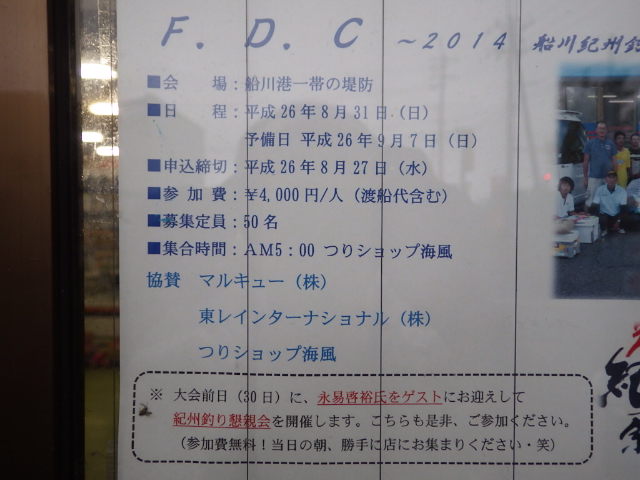 F. D. C ～2014 船川紀州釣
■会　　場：船川港一帯の堤防
■日　　程：平成26年8月31日（日）
予備日 平成26年9月7日（日）
■申込締切：平成26年8月27日（水）
■参 加 費：￥4,000円/人（渡船代含む）
■募集定員：50名
■集合時間：AM5：00 つりショップ海風
協賛　マルキュー（株）
東レインターナショナル（株）
つりショップ海風
※ 大会前日（30日）に、永易啓裕氏をゲストにお迎えして
紀州釣り懇親会を開催します。こちらも是非、ご参加ください。
（参加費無料！当日の朝、勝手に店にお集まりください・笑）